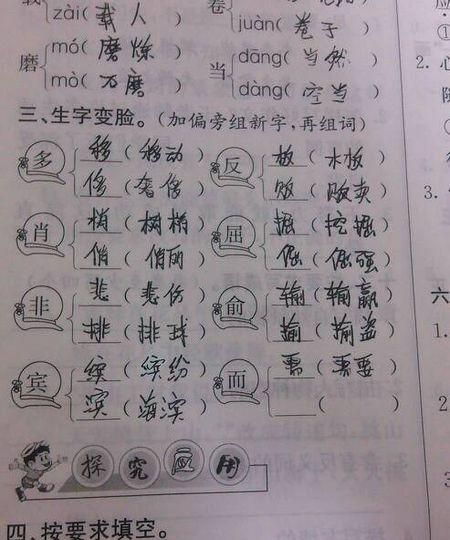 zài(载人) 卷
磨 mó(磨炼) juàn(卷子)
mò(石磨) 当 dāng(当然)
dàng(空当)
三、生字变脸。(加偏旁组新字,再组词)
多 移(移动) 反 板(木板)
侈(奢侈) 贩(贩卖)
肖 梢(树梢) 屈 掘(挖掘)
俏(俏丽) 倔(倔强)
非 悲(悲伤) 俞 输(输赢)
排(排球) 揄(揄盗)
宾 缤(缤纷) 而 需(需要)
滨(海滨) ( )
探究应用
四、按要求填空。
2. 心
3.
六
1.
2
3